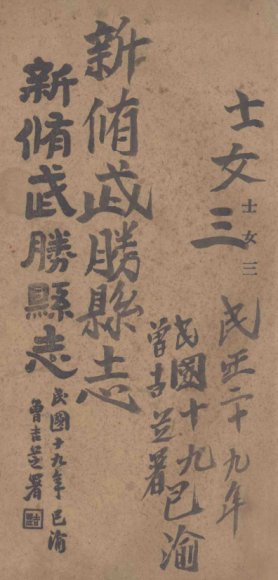 士女三
士女三
民正二十九年
民國十九巳渝
曾吉芝署
新脩武勝縣志
新脩武勝縣志
民國十九年巳渝
魯吉芝署